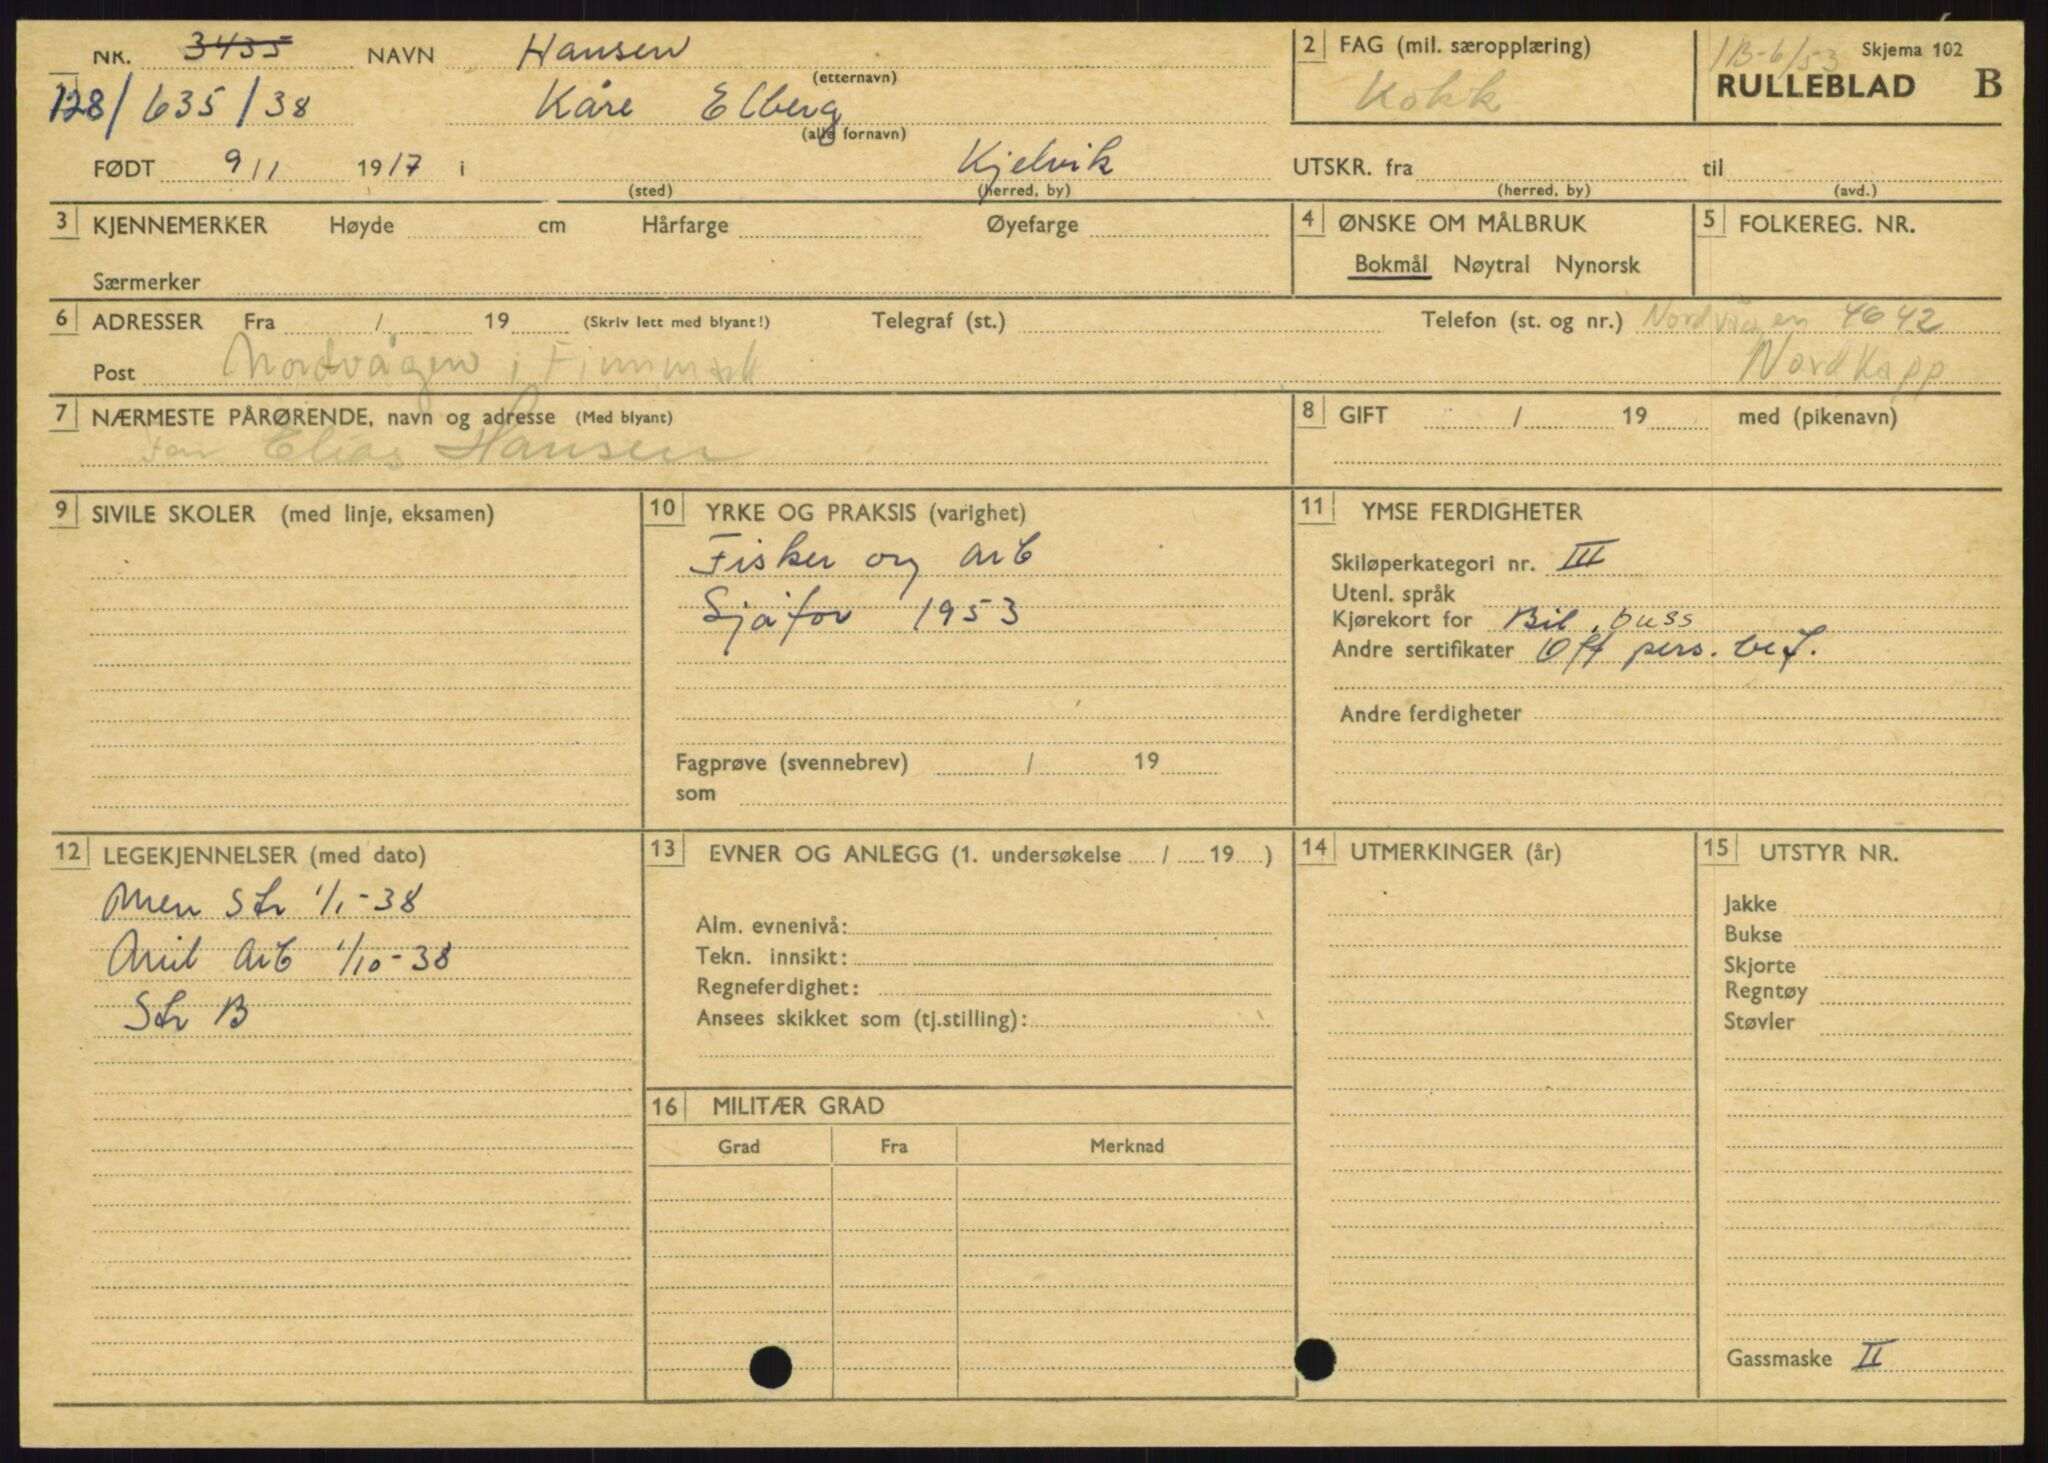 NR. 3435 NAVN Hansen
(etternavn)
128/635/38 Kåre Elberg
(alle fornavn)
FØDT 9/1 1917 i Kjelvik
(sted) (herred, by)
2 FAG (mil. særopplæring)
Kokk
1B-6/53 Skjema 102
RULLEBLAD B
UTSKR. fra til
(herred, by) (avd.)
3 KJENNEMERKER Høyde cm Hårfarge Øyefarge
Særmerker
4 ØNSKE OM MÅLBRUK
Bokmål Nøytral Nynorsk
5 FOLKEREG. NR.
6 ADRESSER Fra / 19 (Skriv lett med blyant!) Telegraf (st.) Telefon (st. og nr.) Nordvågen 4642
Post Nordvågen i Finnmark Nordkapp
7 NÆRMESTE PÅRØRENDE, navn og adresse (Med blyant)
Far Elias Hansen
8 GIFT / 19 med (pikenavn)
9 SIVILE SKOLER (med linje, eksamen)
10 YRKE OG PRAKSIS (varighet)
Fisker og arb
Sjåfør 1953
Fagprøve (svennebrev) / 19
som
11 YMSE FERDIGHETER
Skiløperkategori nr. III
Utenl. språk
Kjørekort for Bil, buss
Andre sertifikater Off pers. bef.
Andre ferdigheter
12 LEGEKJENNELSER (med dato)
Men Str 1/1-38
Mil Arb 1/10-38
Str B
13 EVNER OG ANLEGG (1. undersøkelse / 19 )
Alm. evnenivå:
Tekn. innsikt:
Regneferdighet:
Ansees skikket som (tj.stilling):
14 UTMERKINGER (år)
15 UTSTYR NR.
Jakke
Bukse
Skjorte
Regntøy
Støvler
Gassmaske II
16 MILITÆR GRAD
Grad Fra Merknad